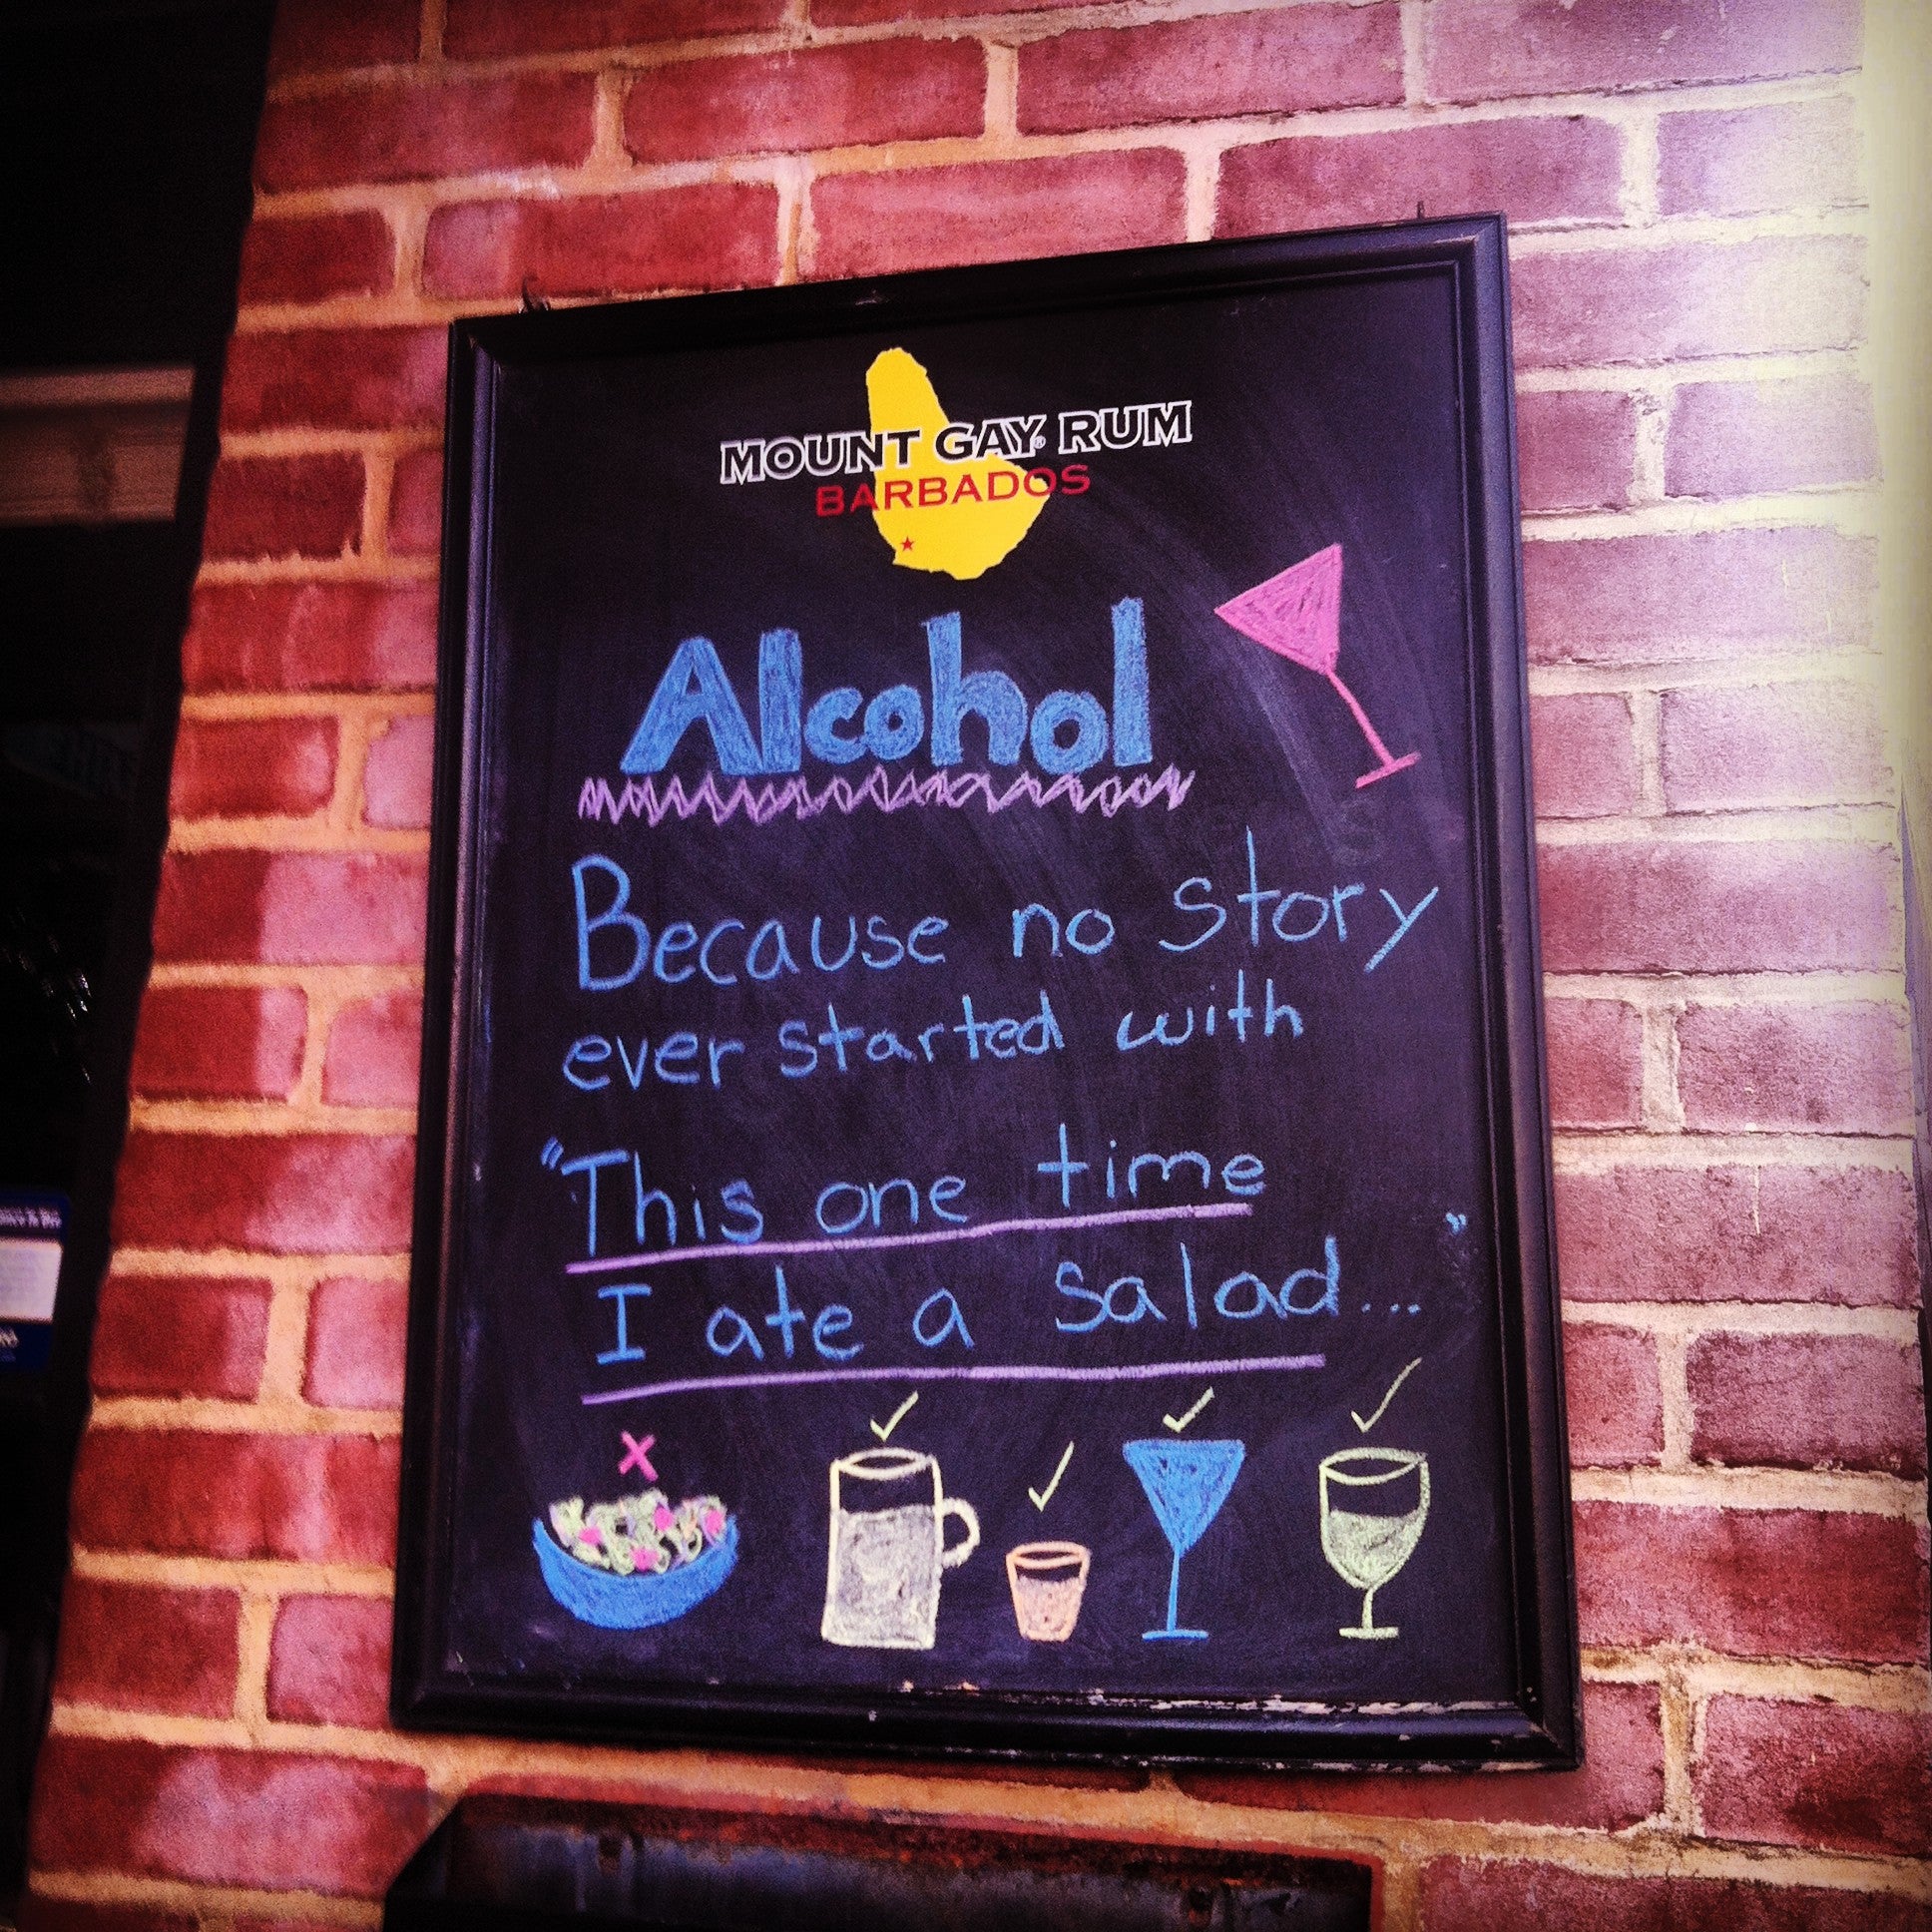 MOUNT GAY® RUM
BARBADOS
Alcohol
Because no story
ever started with
"This one time
I ate a salad..."